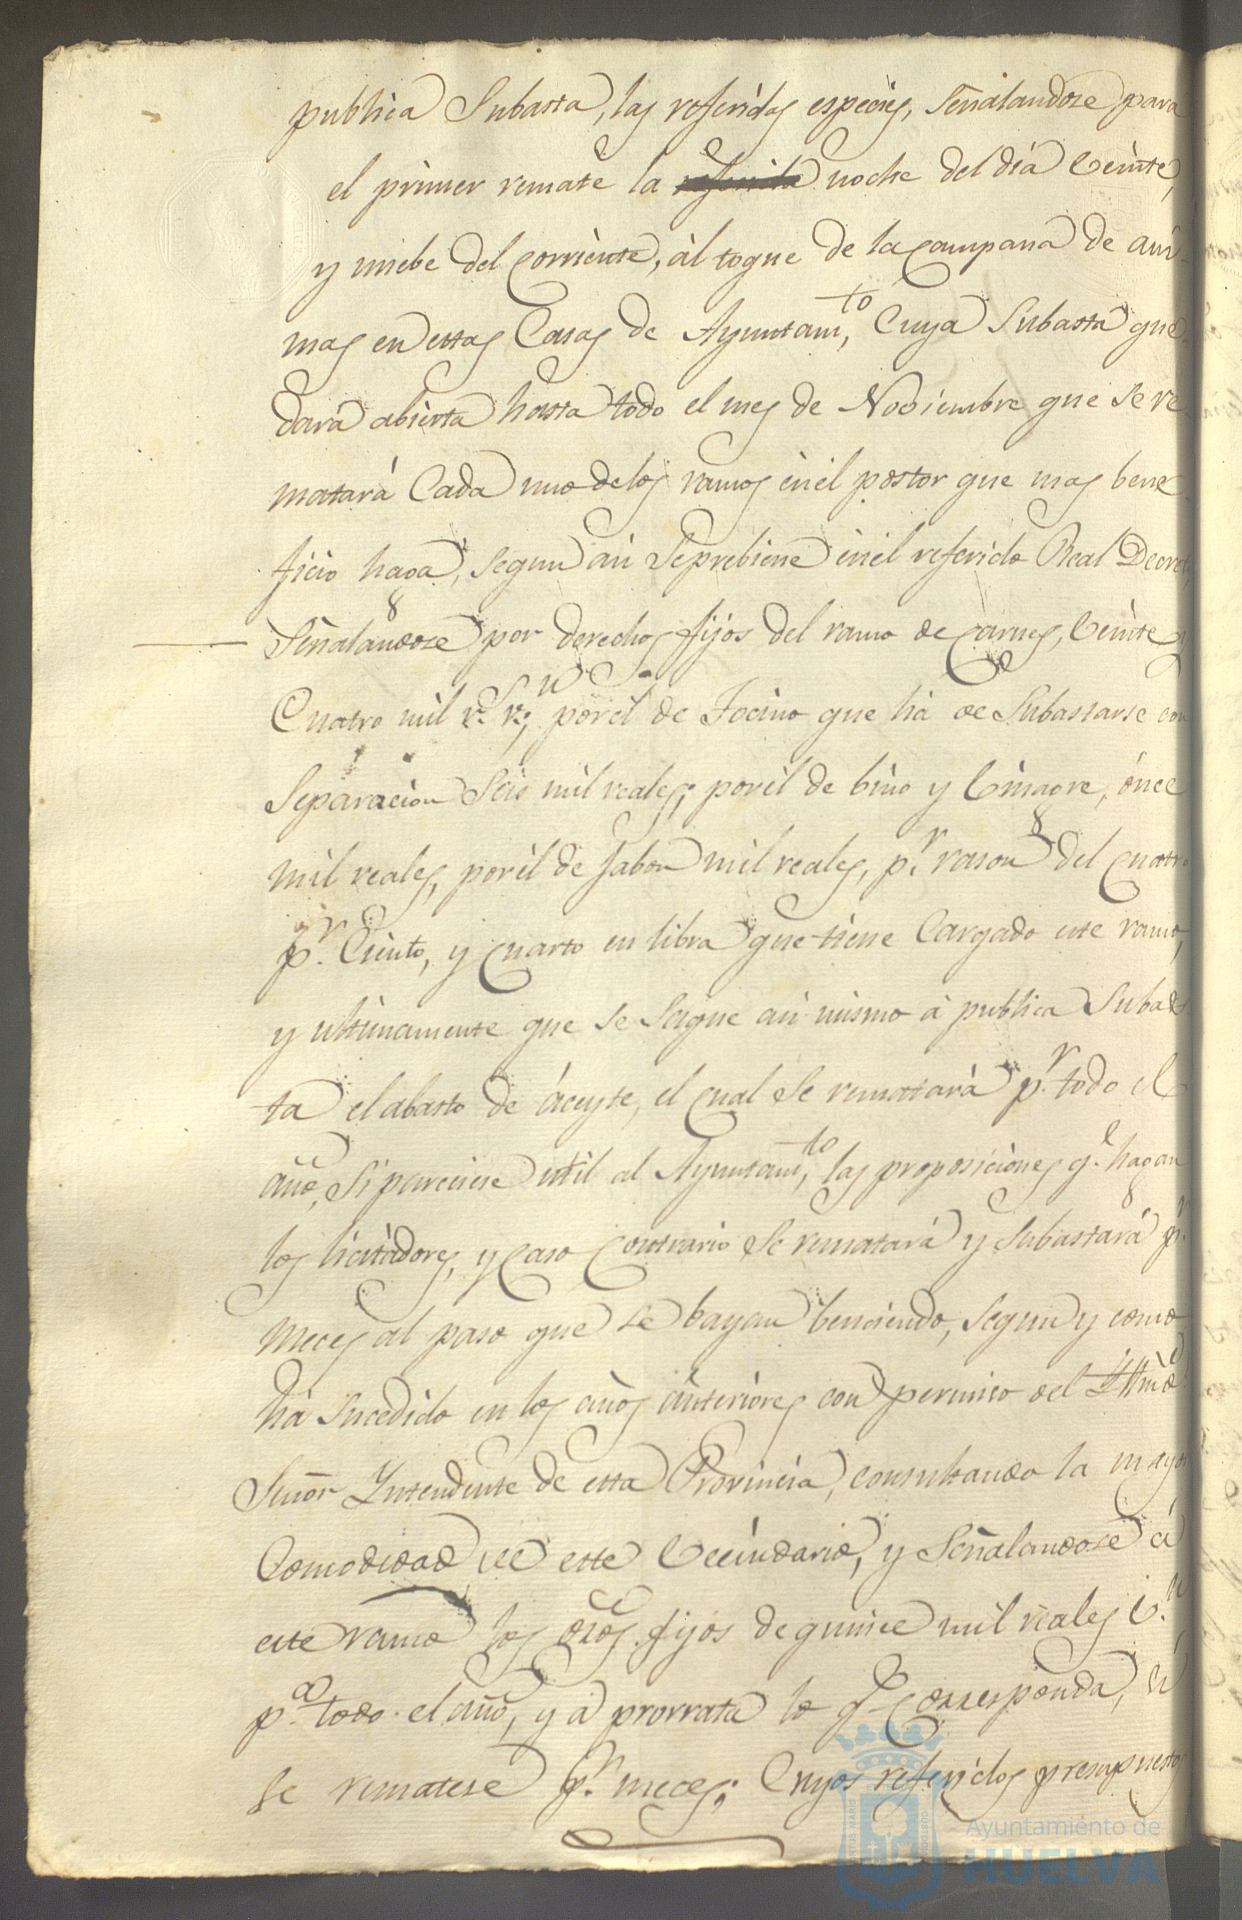 publica Subasta, las referidas especies, Señalandose para
el primer remate la noche del dia Veinte,
y nuebe del Corriente, àl toque de la Campana de ani-
mas en estas Casas de Ayuntam.to, Cuya Subasta que-
dará abierta hasta todo el mes de Noviembre que se re
matará Cada uno de los ramos en el postor que mas bene-
ficio haga, segun asi Se prebiene en el referido Real Decreto,
Señalandose por derechos fijos del ramo de Carnes, Veinte y
Cuatro mil r.s v.n; por el de Tocino que há de Subastarse con
Separacion Seis mil reales; por el de bino y Vinagre, ónce
mil reales, por el de Jabon mil reales, p.r rason del Cuatro
p.r Ciento, y Cuarto en libra que tiene Cargado este ramo,
y ultimamente que se Saque asi mismo à publica Subas-
ta el abasto de áceyte, el cual Se rematará p.r todo el
año, Si pareciese util al Ayuntam.to, las proposiciones q.e hagan
los licitadores, y Caso Contrario Se rematará y Subastará p.r
meces al paso que se bayan benciendo, Segun y como
há Sucedido en los años ánteriores con permiso del Yllmo
Señor Yntendente de esta Provincia, consultando la mayor
Comodidad de este Vecindario, y Señalandose á
este ramo los dros. fijos de quince mil reales v.n
p.a todo el año, y á prorrata lo q.e Corresponda, si
se rematese p.r meces; Cuyos referidos presupuestos
Ayuntamiento de
HUELVA